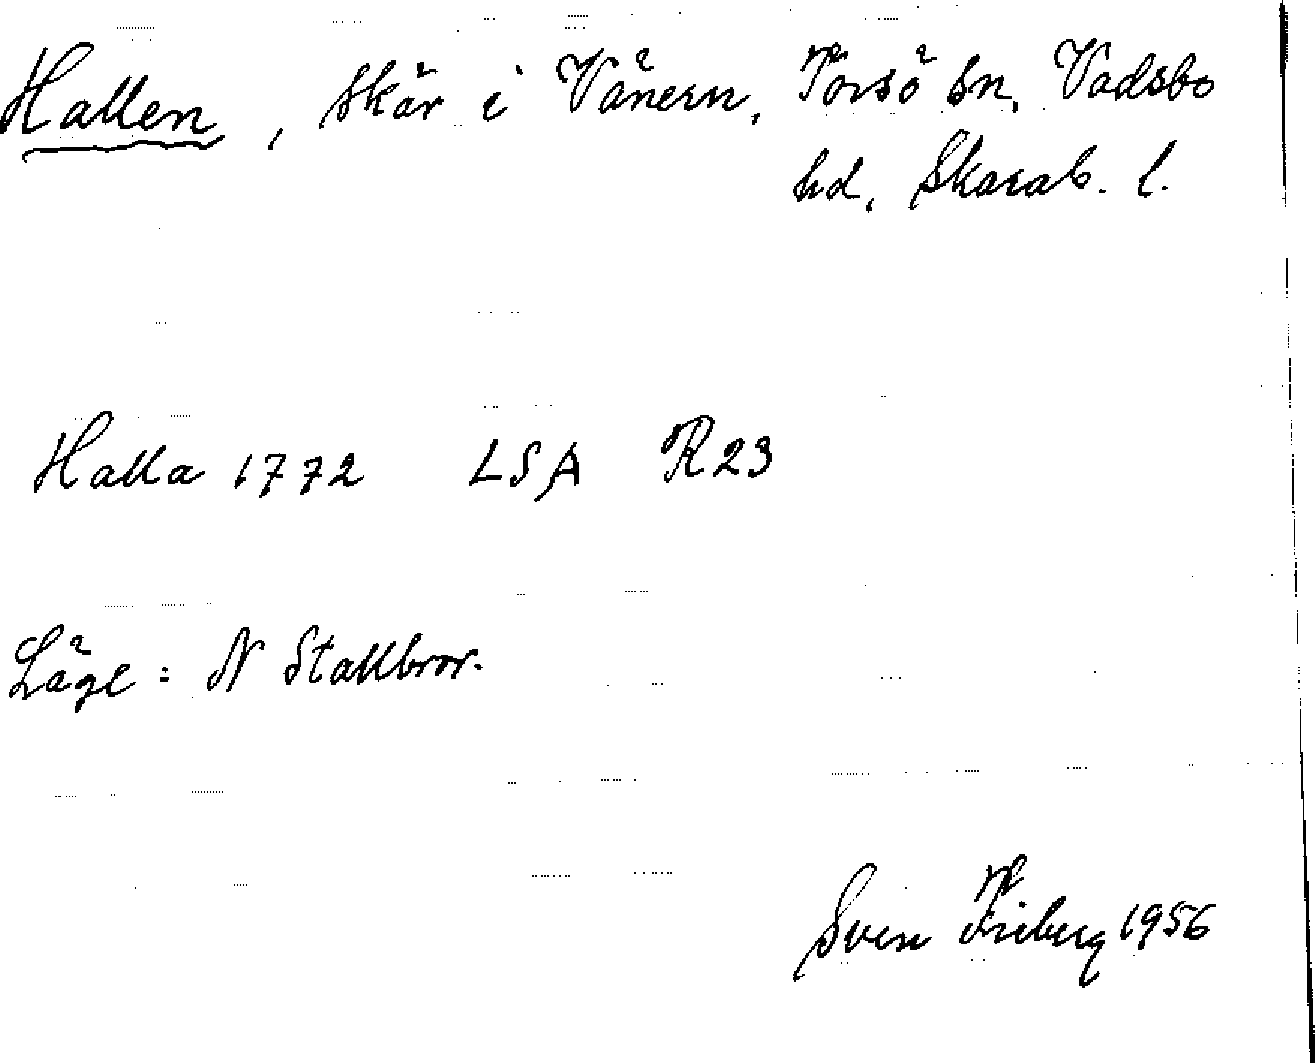 Hallen, skär i Vänern, Torsö sn, Vadsbo
hd, Skarab. l.
Halla 1772 LSA R23
Läge: N Stallbror.
Sven Friberg 1956